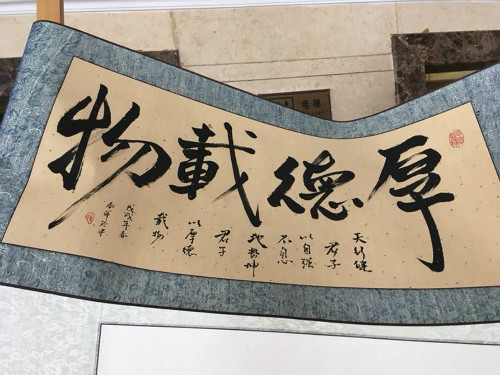 厚德載物
天行健
君子
以自强
不息
地势坤
君子
以厚德
载物
戊戌年春